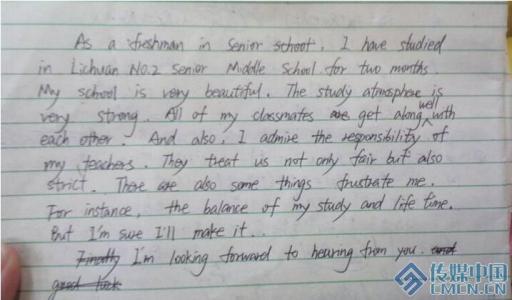 As a freshman in senior school, I have studied
in Lichuan NO.2 Senior Middle School for two months.
My school is very beautiful. The study atmosphere is
very strong. All of my classmates are get along well with
each other. And also, I admire the responsibility of
my teachers. They treat us not only fair but also
strict. There are also some things frustrate me.
For instance, the balance of my study and life time.
But I'm sure I'll make it...
Finally I'm looking forward to hearing from you. and
good luck
传媒中国
CMCN.CN